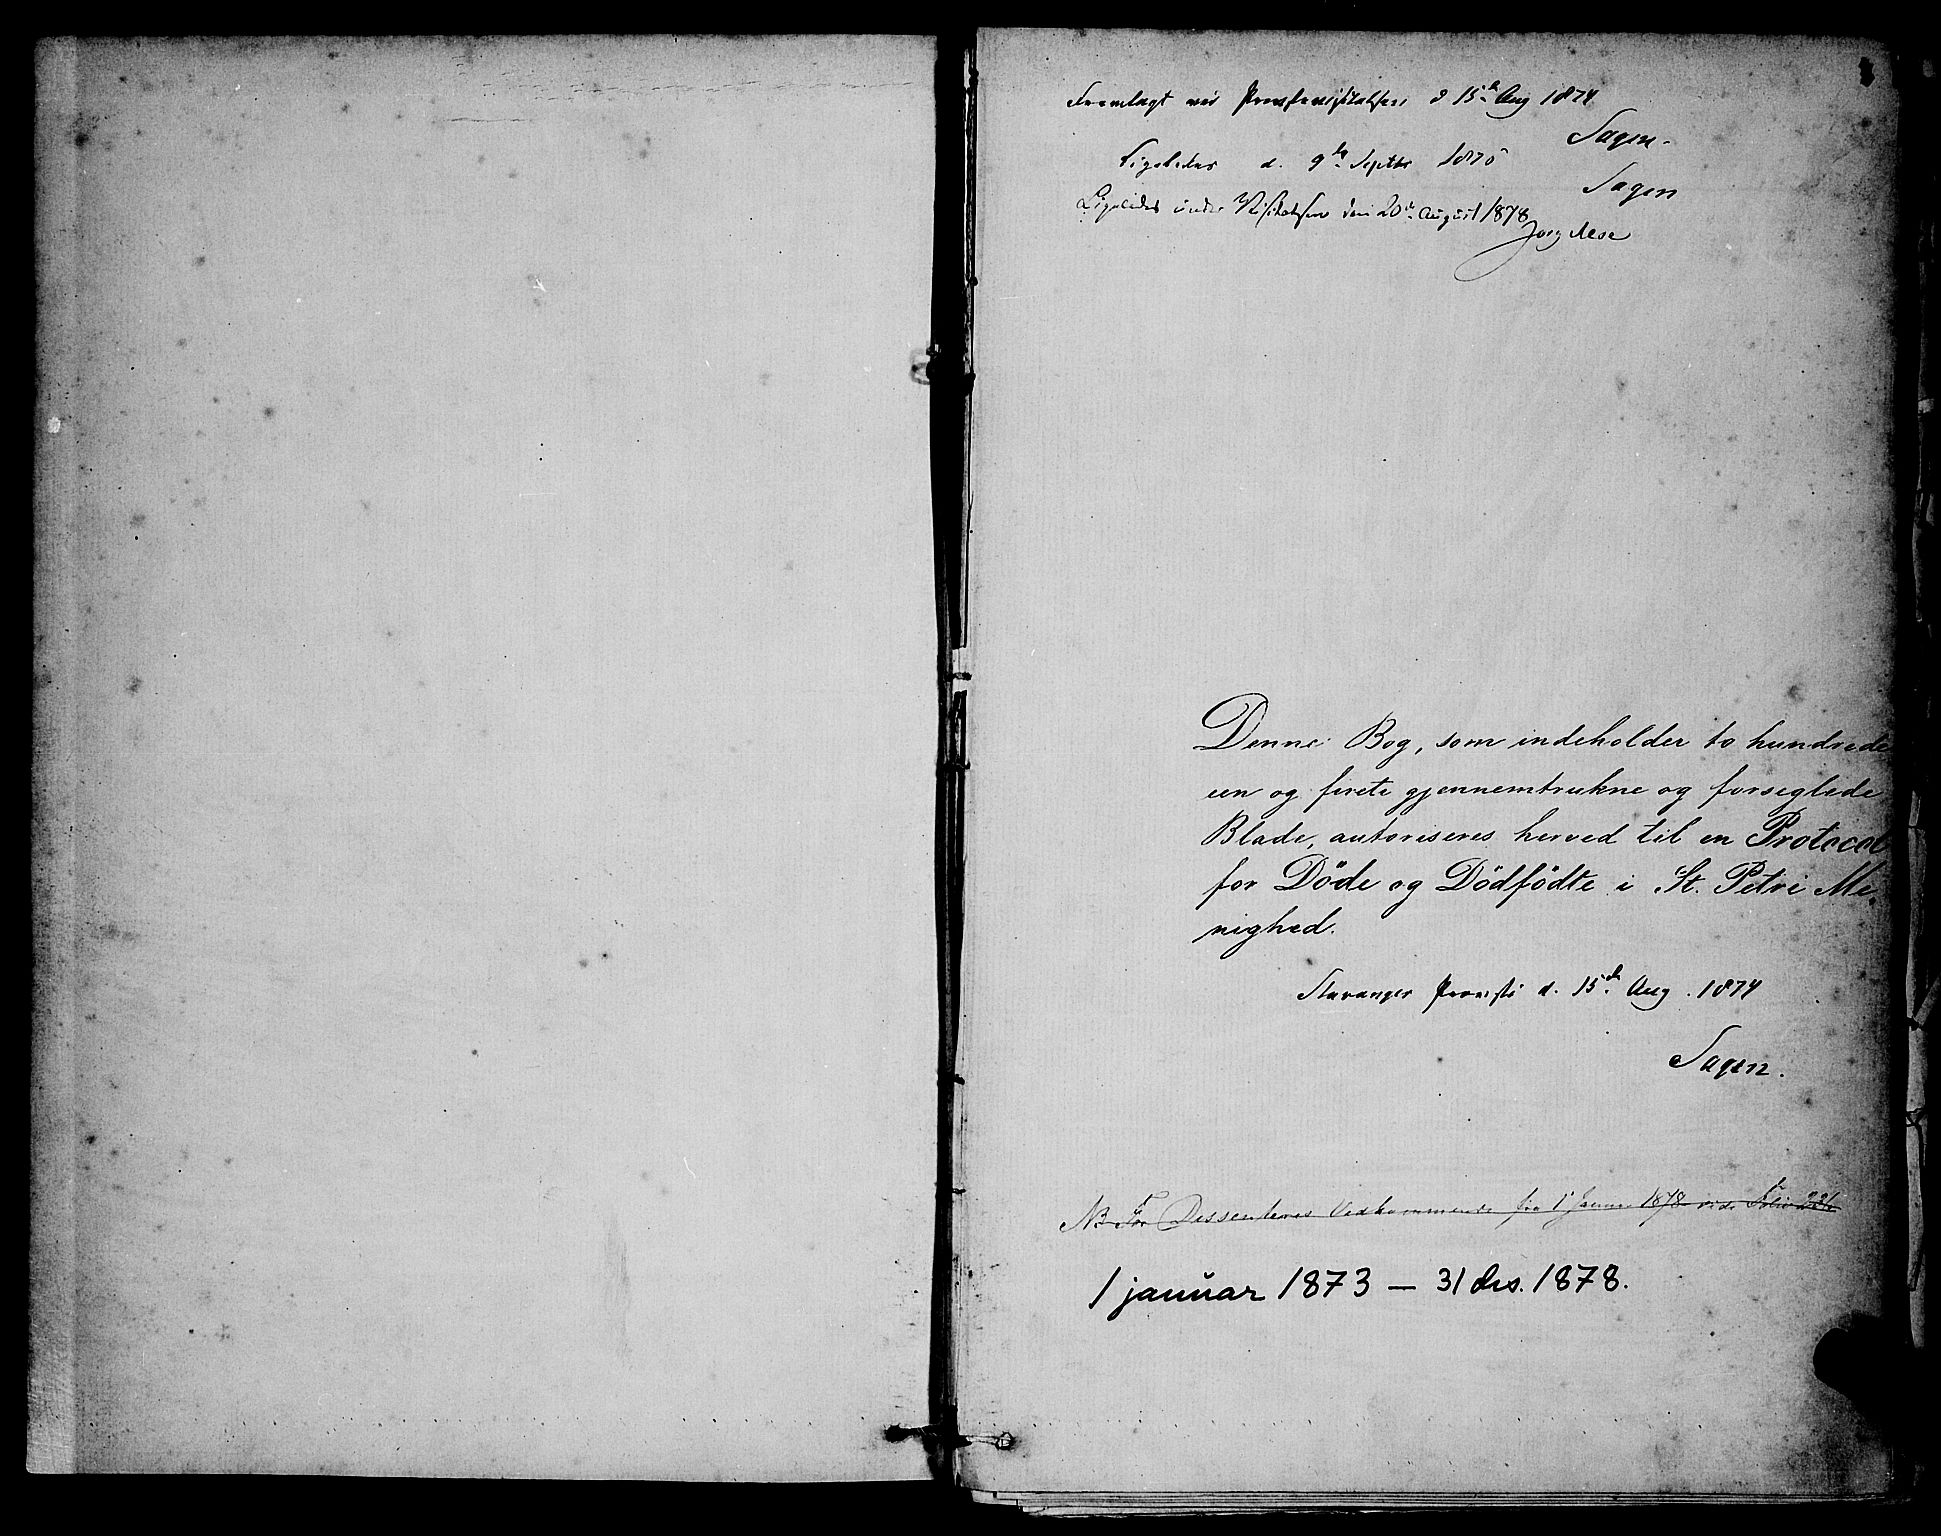 Fremlagt ved Provstevisitatsen d 15de Aug 1874
Sagen.
Ligeledes d. 9de Septbr 1875
Sagen
Ligeledes under Visitatsen den 20de August 1878
Denne Bog, som indeholder to hundrede
een og firete gjennemtrukne og forseglede
Blade, autoriseres herved til en Protocol
for Döde og Dödfödte i St. Petri Me-
nighed.
Stavanger Provsti d. 15de Aug. 1874
Sagen.
NB For Dissenteres Vedkommende fra 1 Januar 1878 vide Folio 221
1 januar 1873 – 31 des. 1878.